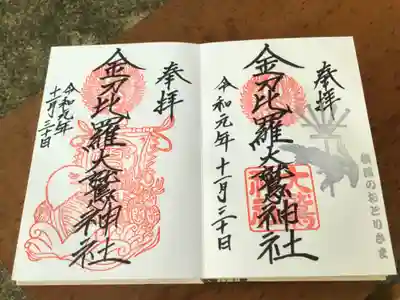 奉拝
金刀比羅大鷲神社
令和元年
十一月二十日
奉拝
金刀比羅大鷲神社
令和元年十一月二十日
横濱のおとりさま